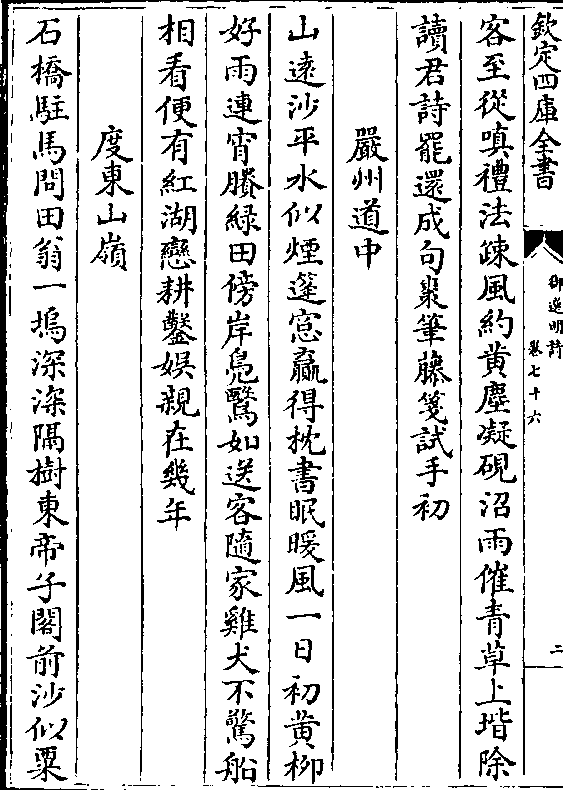 欽定四庫全書
御選明詩
卷七十六
二
客至從嗔禮法疎風約黄塵凝硯沼雨催青草上堦除
讀君詩罷還成句棗筆藤箋試手初
嚴州道中
山逺沙平水似煙篷窓贏得枕書眠暖風一日初黄柳
好雨連宵勝緑田傍岸鳬鷖如送客隨家雞犬不驚船
相看便有紅湖戀耕鑿娛親在幾年
度東山嶺
石橋駐馬問田翁一塢深深隔樹東帝子閣前沙似粟